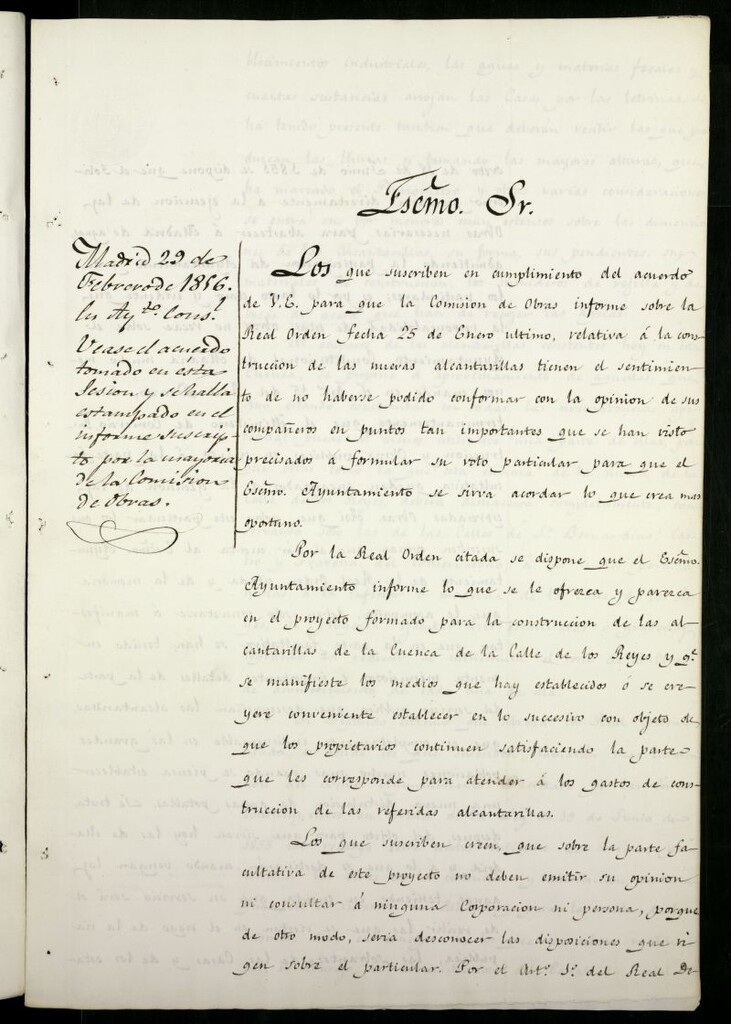 Escmo. Sr.
Madrid 29 de
Febrero de 1856.
En Ay.to Cons.l
Vease el acuerdo
tomado en ésta
Sesion y se halla
estampado en el
informe suscrip-
to por la mayoria
de la Comision
de Obras.
Los que suscriben en cumplimiento del acuerdo
de V.E. para que la Comision de Obras informe sobre la
Real Orden fecha 25 de Enero ultimo, relativa á la cons
truccion de las nuevas alcantarillas tienen el sentimien-
to de no haberse podido conformar con la opinion de sus
compañeros en puntos tan importantes que se han visto
precisados á formular su voto particular para que el
Escmo. Ayuntamiento se sirva acordar lo que crea mas
oportuno.
Por la Real Orden citada se dispone que el Escmo.
Ayuntamiento informe lo que se le ofrezca y parezca
en el proyecto formado para la construccion de las al-
cantarillas de la Cuenca de la Calle de los Reyes y q.e
se manifieste los medios que hay establecidos ó se cre-
yere conveniente establecer en lo succesivo con objeto de
que los propietarios continuen satisfaciendo la parte
que les corresponde para atender á los gastos de cons-
truccion de las referidas alcantarillas.
Los que suscriben creen, que sobre la parte fa-
cultativa de este proyecto no deben emitir su opinion
ni consultar á ninguna Corporacion ni persona, porque
de otro modo, seria desconocer las disposiciones que ri-
gen sobre el particular. Por el Art.o 1.o del Real De-